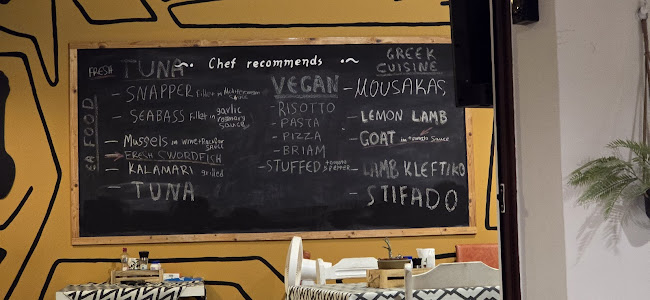 ~ Chef recommends ~
FRESH TUNA
SEA FOOD
- SNAPPER fillet in Mediterranean sauce
- SEABASS fillet in garlic rosemary sauce
- Mussels in wine +
sauce
FRESH CWORDFISH
- KALAMARI grilled
- TUNA
VEGAN
- RISOTTO
- PASTA
- PIZZA
- BRIAM
- STUFFED tomato & PEPPER
GREEK
CUISINE
- MOUSAKAS
- LEMON LAMB
- GOAT in tomato sauce
- LAMB KLEFTIKO
- STIFADO